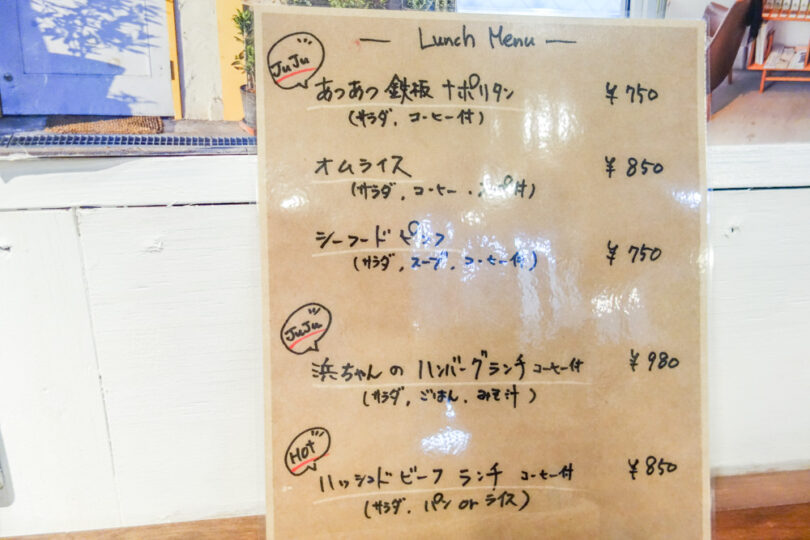 — Lunch Menu —
JuJu
あつあつ 鉄板 ナポリタン ¥750
(サラダ, コーヒー付)
オムライス ¥850
(サラダ, コーヒー・スープ付)
シーフードピラフ ¥750
(サラダ, スープ, コーヒー付)
JuJu
浜ちゃんの ハンバーグランチ コーヒー付 ¥980
(サラダ, ごはん, みそ汁)
Hot
ハッシュドビーフ ランチ コーヒー付 ¥850
(サラダ, パン or ライス)